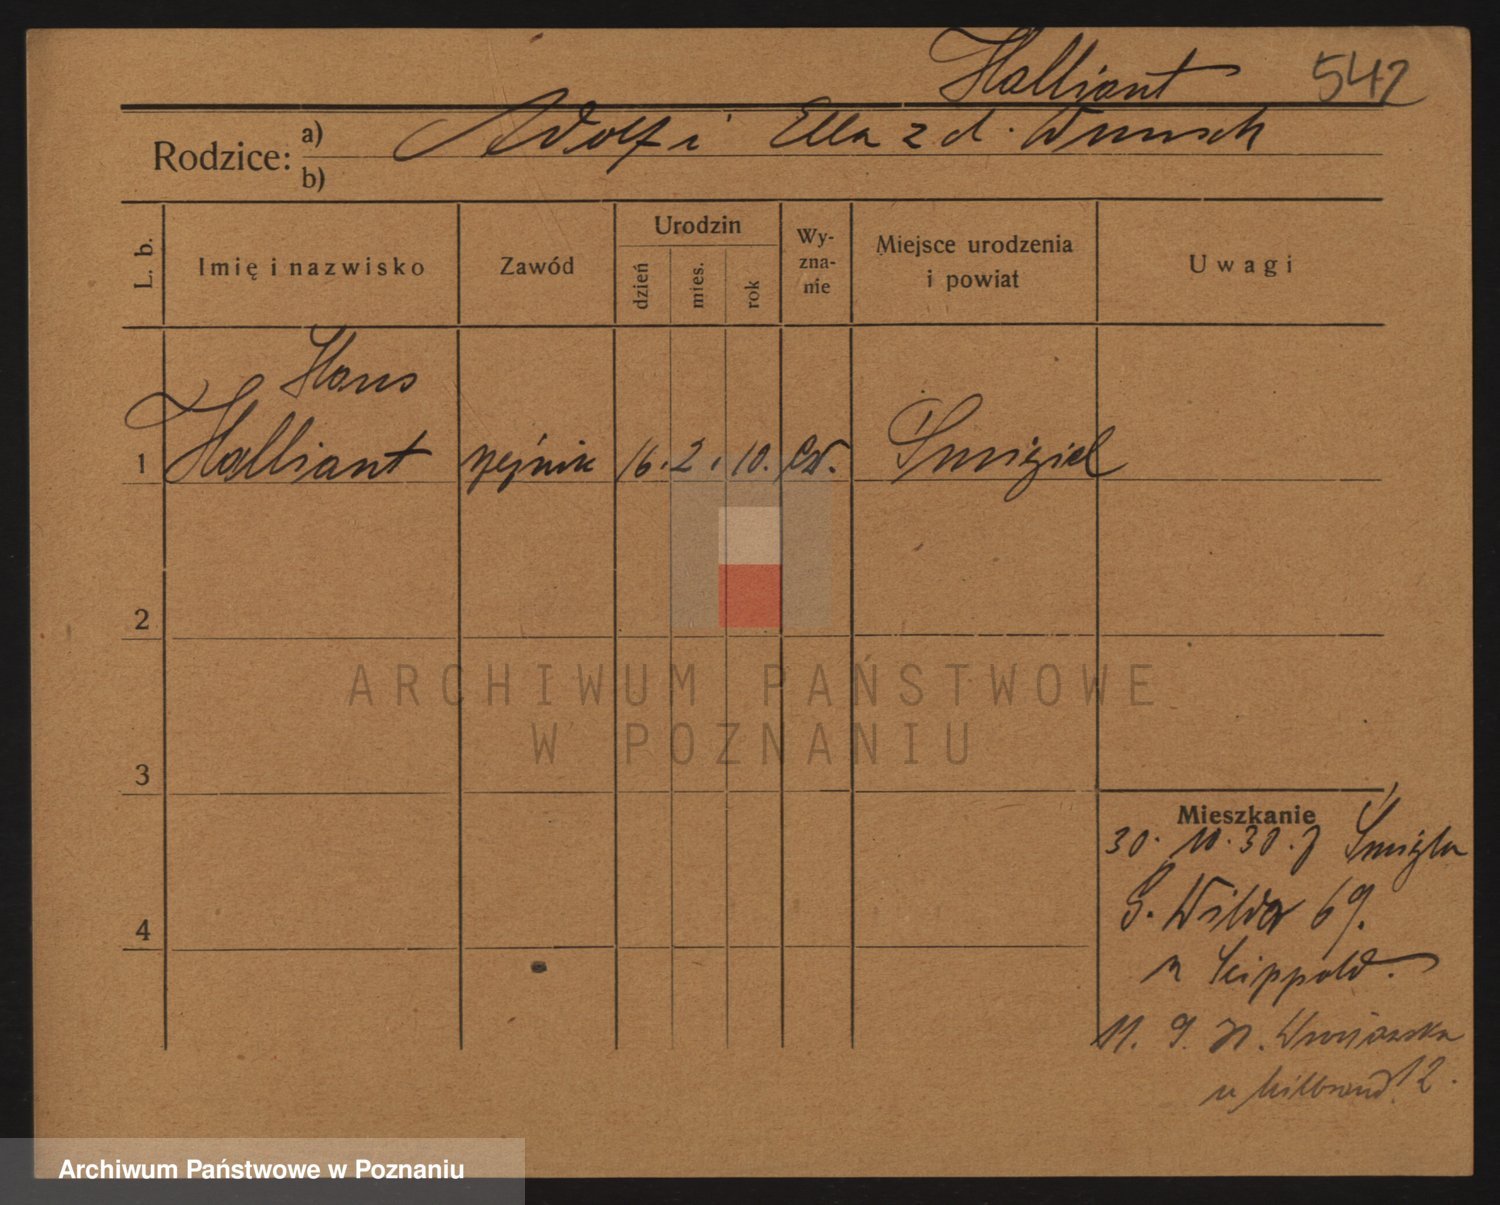 Halliant 542
Rodzice: a) Adolf i Ella z d. Wunsch
b)
L. b.
Imię i nazwisko
Zawód
Urodzin
dzień
mies.
rok
Wy-
zna-
nie
Miejsce urodzenia
i powiat
Uwagi
Hans
1 Halliant 16. 2. 10. ew. Śmigiel
2
3
4
Mieszkanie
30. 10. 30. z Śmigla
G. Wilda 69.
u Leippold.
11. 9.
u Hilbrand. 12.
ARCHIWUM PAŃSTWOWE
W POZNANIU
Archiwum Państwowe w Poznaniu